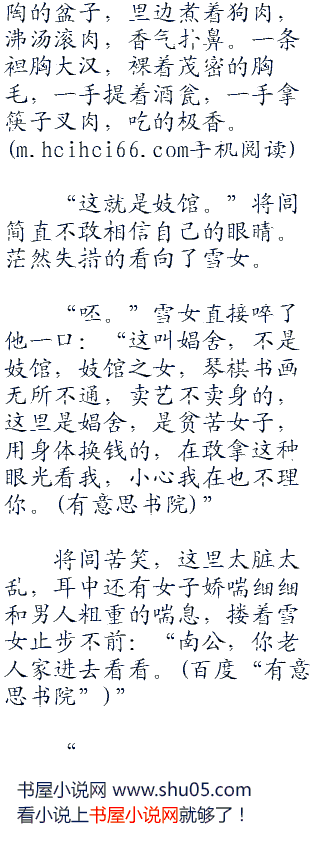 陶的盆子，里边煮着狗肉，
沸汤滚肉，香气扑鼻。一条
袒胸大汉，裸着茂密的胸
毛，一手提着酒瓮，一手拿
筷子叉肉，吃的极香。
(m.hcihci66.com手机阅读)
“这就是妓馆。”将闾
简直不敢相信自己的眼睛。
茫然失措的看向了雪女。
“呸。”雪女直接啐了
他一口：“这叫娼舍，不是
妓馆，妓馆之女，琴棋书画
无所不通，卖艺不卖身的，
这里是娼舍，是贫苦女子，
用身体换钱的，在敢拿这种
眼光看我，小心我在也不理
你。(有意思书院)”
将闾苦笑，这里太脏太
乱，耳中还有女子娇喘细细
和男人粗重的喘息，搂着雪
女止步不前：“南公，你老
人家进去看看。(百度“有意
思书院”)”
“
书屋小说网 www.shu05.com
看小说上书屋小说网就够了！